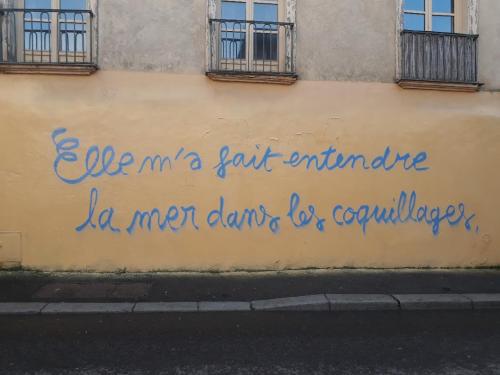 Elle m'a fait entendre
la mer dans les coquillages.